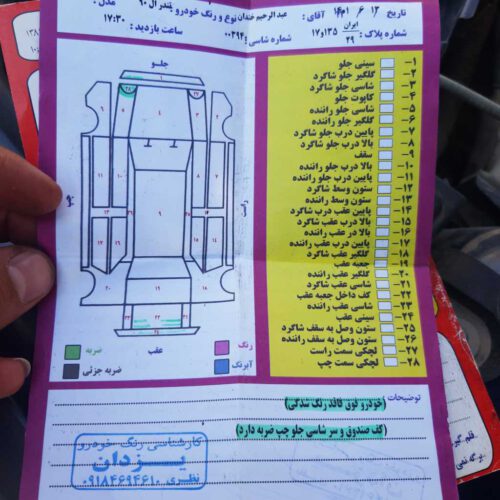 تاریخ ۱۴۰۱ ۶ ۱۲ آقای: عبدالرحیم خندان نوع و رنگ خودرو: تندر ال ۹۰ مدل:
شماره پلاک: ایران ۲۹ ۱۳۵ و ۱۷ شماره شاسی: ۰۰۳۹۴ ساعت بازدید: ۱۷:۳۰
جلو
چپ
راست
عقب
ضربه
رنگ
ضربه جزئی
آبرنگ
۱- سینی جلو
۲- گلگیر جلو شاگرد
۳- شاسی جلو شاگرد
۴- کاپوت جلو
۵- شاسی جلو راننده
۶- گلگیر جلو راننده
۷- پایین درب جلو شاگرد
۸- بالا درب جلو شاگرد
۹- سقف
۱۰- بالا درب جلو راننده
۱۱- پایین درب جلو راننده
۱۲- ستون وسط شاگرد
۱۳- ستون وسط راننده
۱۴- پایین درب عقب شاگرد
۱۵- بالا درب عقب شاگرد
۱۶- بالا در عقب راننده
۱۷- پایین درب عقب راننده
۱۸- گلگیر عقب شاگرد
۱۹- جعبه عقب
۲۰- گلگیر عقب راننده
۲۱- شاسی عقب شاگرد
۲۲- کف داخل جعبه عقب
۲۳- شاسی عقب راننده
۲۴- سینی عقب
۲۵- ستون وصل به سقف شاگرد
۲۶- ستون وصل به سقف راننده
۲۷- لچکی سمت راست
۲۸- لچکی سمت چپ
توضیحات
(خودرو فوق فاقد رنگ شدگی)
(کف صندوق و سر شاسی جلو چپ ضربه دارد)
کارشناسی رنگ خودرو
یزدان
نظری ۰۹۱۸۴۶۹۴۶۱۰